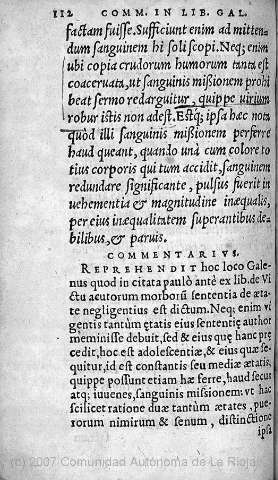 112 COMM. IN LIB. GAL.
factam fuisse. Sufficiunt enim ad mitten-
dum sanguinem hi soli scopi. Neq; enim
ubi copia crudorum humorum tanta est
coaceruata, ut sanguinis missionem prohi
beat sermo redarguitur, quippe virium
robur istis non adest. Estq; ipsa hæc nota
quòd illi sanguinis missionem perferre
haud queant, quando unà cum colore to
tius corporis qui tum accidit, sanguinem
redundare significante, pulsus fuerit in
uehementia & magnitudine inæqualis,
per eius inæqualitatem superantibus de-
bilibus, & paruis.
COMMENTARIVS.
REPREHENDIT hoc loco Gale
nus quod in citata paulò antè ex lib. de Vi
ctu acutorum morborũ sententia de æta-
te negligentius est dictum. Neq; enim vi
gentis tantùm ętatis eius sententię author
meminisse debuit, sed & eius quę hanc prę
cedit, hoc est adolescentiæ, & eius quæ se-
quitur, id est constantis seu mediæ ætatis,
quippe possunt etiam hæ ferre, haud secus
atq; iuuenes, sanguinis missionem: vt hac
scilicet ratione duæ tantùm ætates, pue-
rorum nimirum & senum, distinctione
ipsa
(c) 2007 Comunidad Autónoma de La Rioja